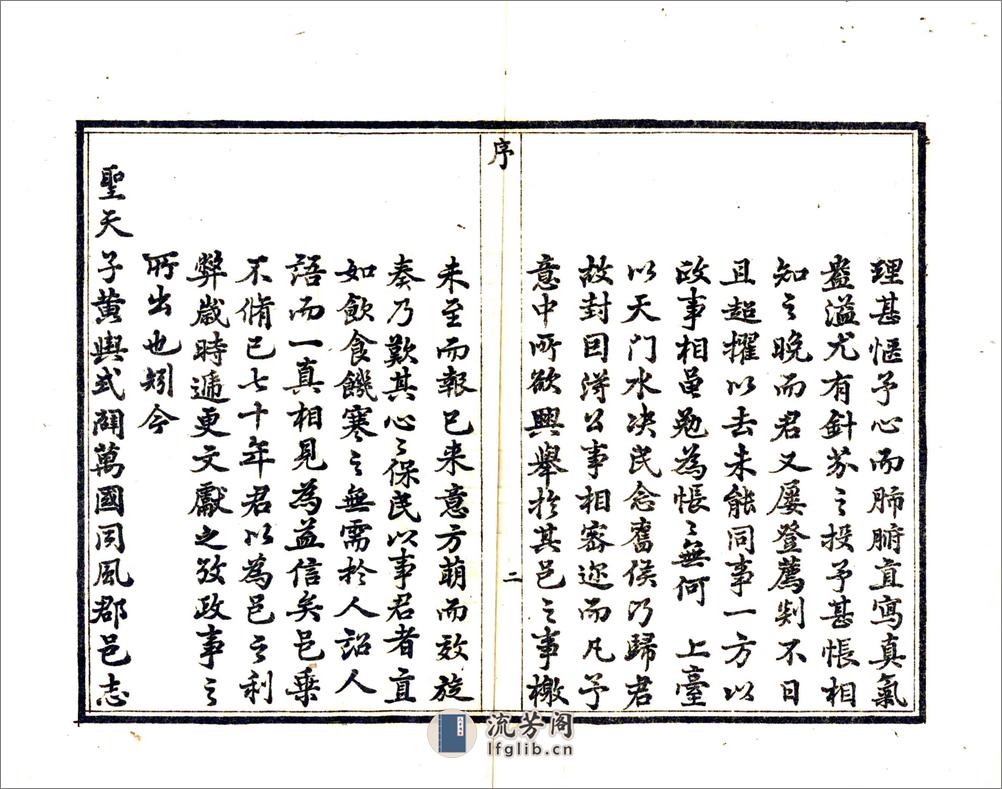 理甚愜予心而肺腑直寫真氣
盎溢尤有針芥之投予甚悵相
知之晚而君又屢登薦剡不日
且超擢以去未能同事一方以
政事相黽勉為悵之無何 上臺
以天門水決民念舊侯乃歸君
故封因得公事相密邇而凡予
意中所欲興舉於其邑之事檄
序
二
未至而報已来意方萌而效旋
奏乃歎其心之保民以事君者直
如飲食饑寒之無需於人詔人
語而一真相見為益信矣邑乗
不脩已七十年君以為邑之利
弊歲時遞更文獻之攷政事之
所出也矧今
聖天子黄輿式闢萬國同風郡邑志
流芳阁
lfglib.cn